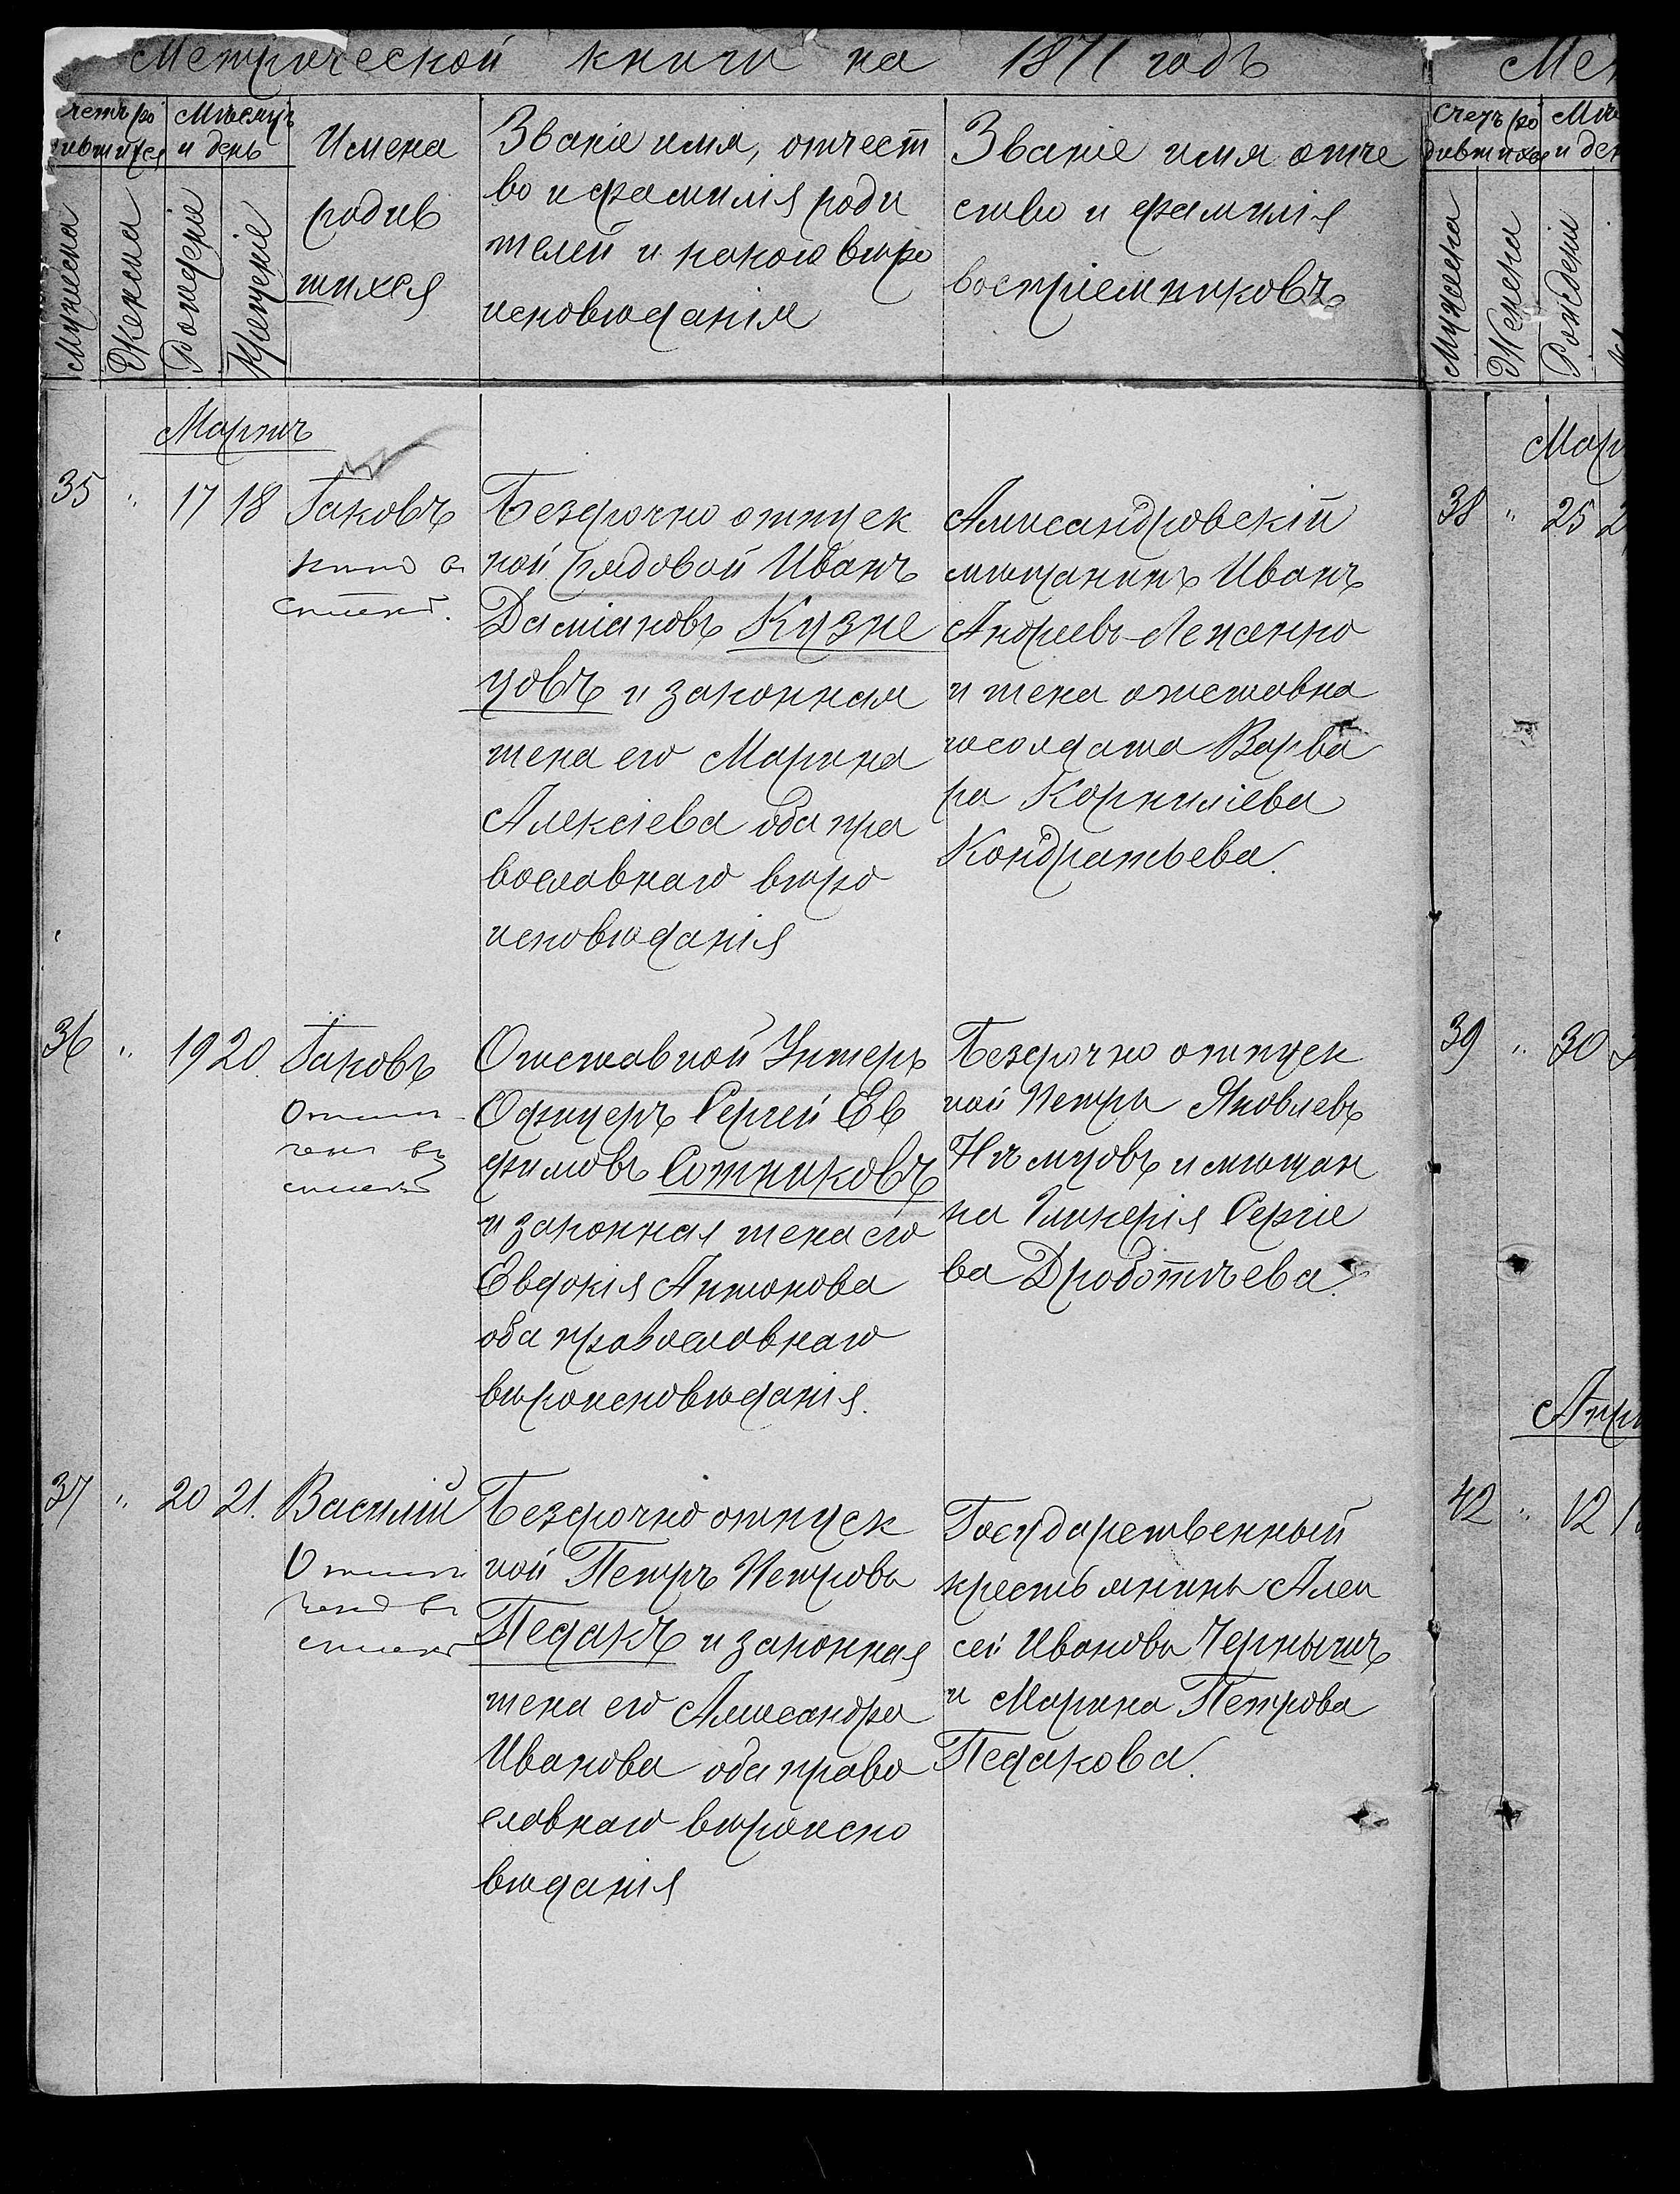 Метрической книги на 1871 годъ
счетъ ро
дившихся
Мѣсяцъ
и день
Мужеска
Женска
Рожденіе
Крещеніе
Имена
родив
шихся
Званіе имя, отчест
во и фамилія роди
телей и какого вѣро
исповѣданія
Званіе имя отче
ство и фамилія
воспріемниковъ
Мартъ
35 " 17 18 Іаковъ
Безсрочно отпуск
ной рядовой Иванъ
Даміановъ Кузне
цовъ и законная
жена его Марина
Алексіева оба пра
вославнаго вѣро
исповѣданія
Александровскій
мѣщанинъ Иванъ
Андреевъ
и жена отставна
го солдата Варва
ра Корниліева
Кондратьева.
36 " 19 20. Іаковъ
Отставной Унтеръ
Офицеръ Сергей Ев
фимовъ Сотниковъ
и законная жена его
Евдокія Антонова
оба православнаго
вѣроисповѣданія.
Безсрочно отпуск
ной Петръ Яковлевъ
Нѣмцовъ и мѣщан
ка Гликерія Сергіе
ва Дроботѣева.
37 " 20 21. Василій
Безсрочно отпуск
ной Петръ Петровъ
Педакъ и законная
жена его Александра
Иванова оба право
славнаго вѣроиспо
вѣданія
Государственный
крестьянинъ Алек
сей Ивановъ Чернышъ
и Марина Петрова
Педакова.
Счетъ ро
дившихся
и ден
Мужеска
Женска
Рожденіи
38 " 25
39 " 30
42 " 12